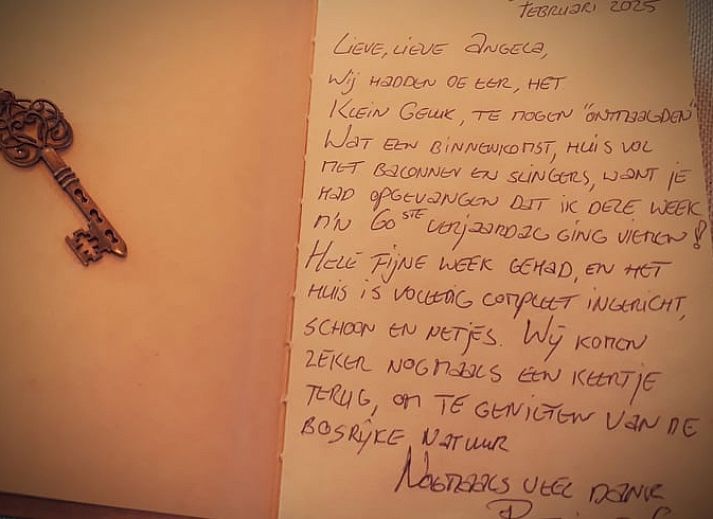 Februari 2025
Lieve, lieve Angela,
Wij hadden de eer, het
Klein Geluk, te mogen "ontmaagden"
Wat een binnenkomst, huis vol
met baconnen en slingers, want je
had opgevangen dat ik deze week
m'n 60ste verjaardag ging vieren!
Hele fijne week gehad, en het
huis is volledig compleet ingericht,
schoon en netjes. Wij komen
zeker nogmaals een keertje
terug, om te genieten van de
bosrijke natuur
Nogmaals veel dank